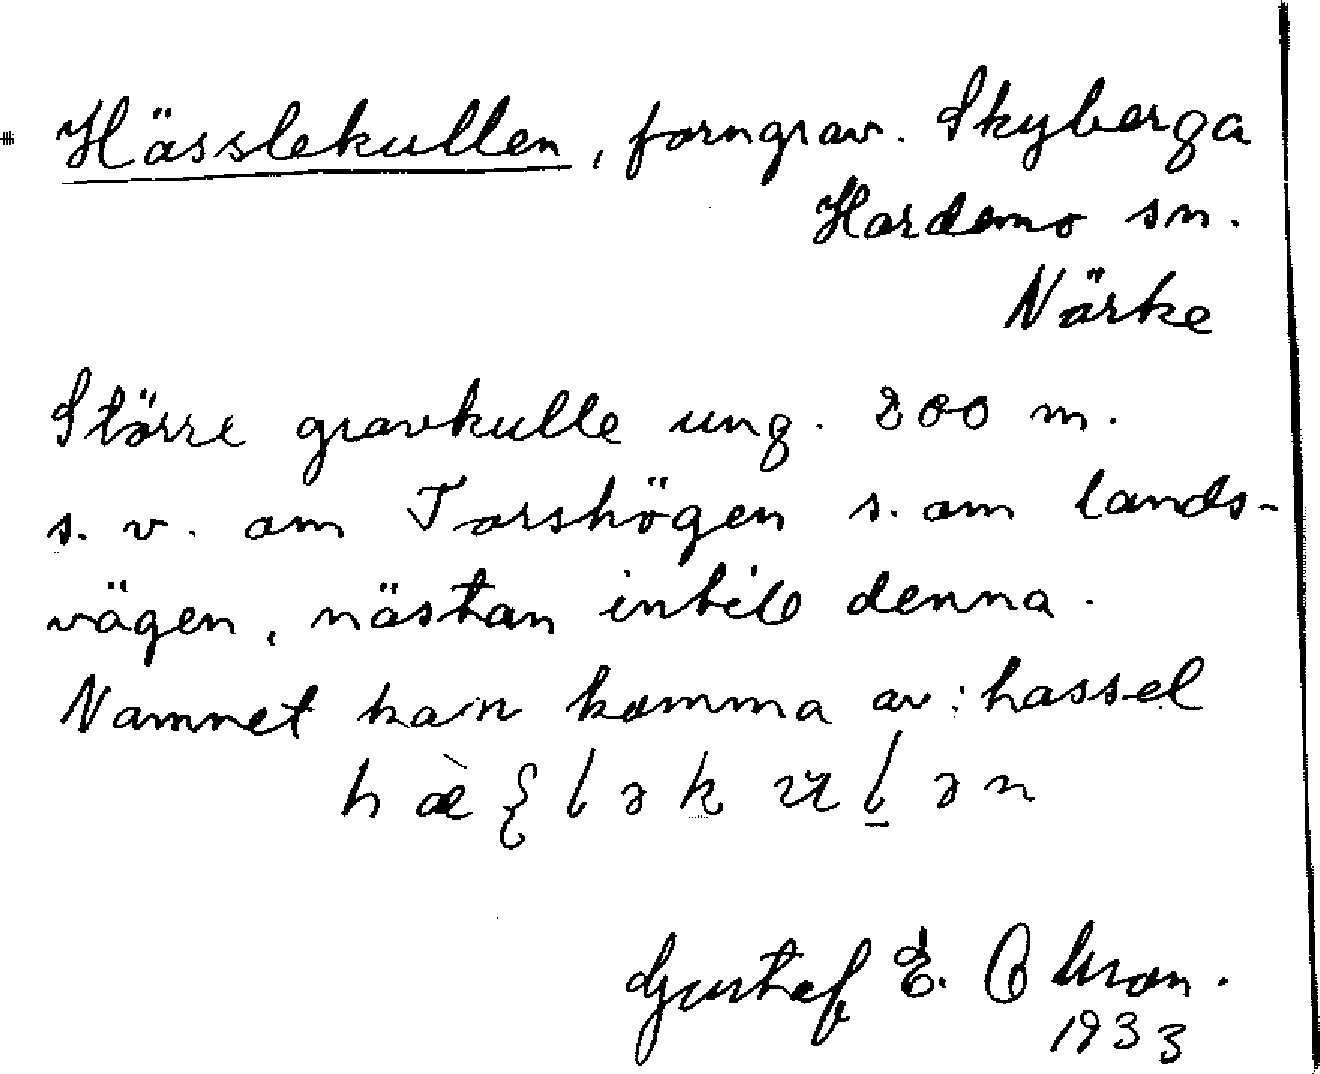 Hässlekullen, forngrav. Skyberga
Hardemo sn.
Närke
Större gravkulle ung. 200 m.
s. v. om Torshögen s. om lands-
vägen, nästan intill denna.
Namnet kan komma av: hassel
Gustaf E. Olsson.
1933